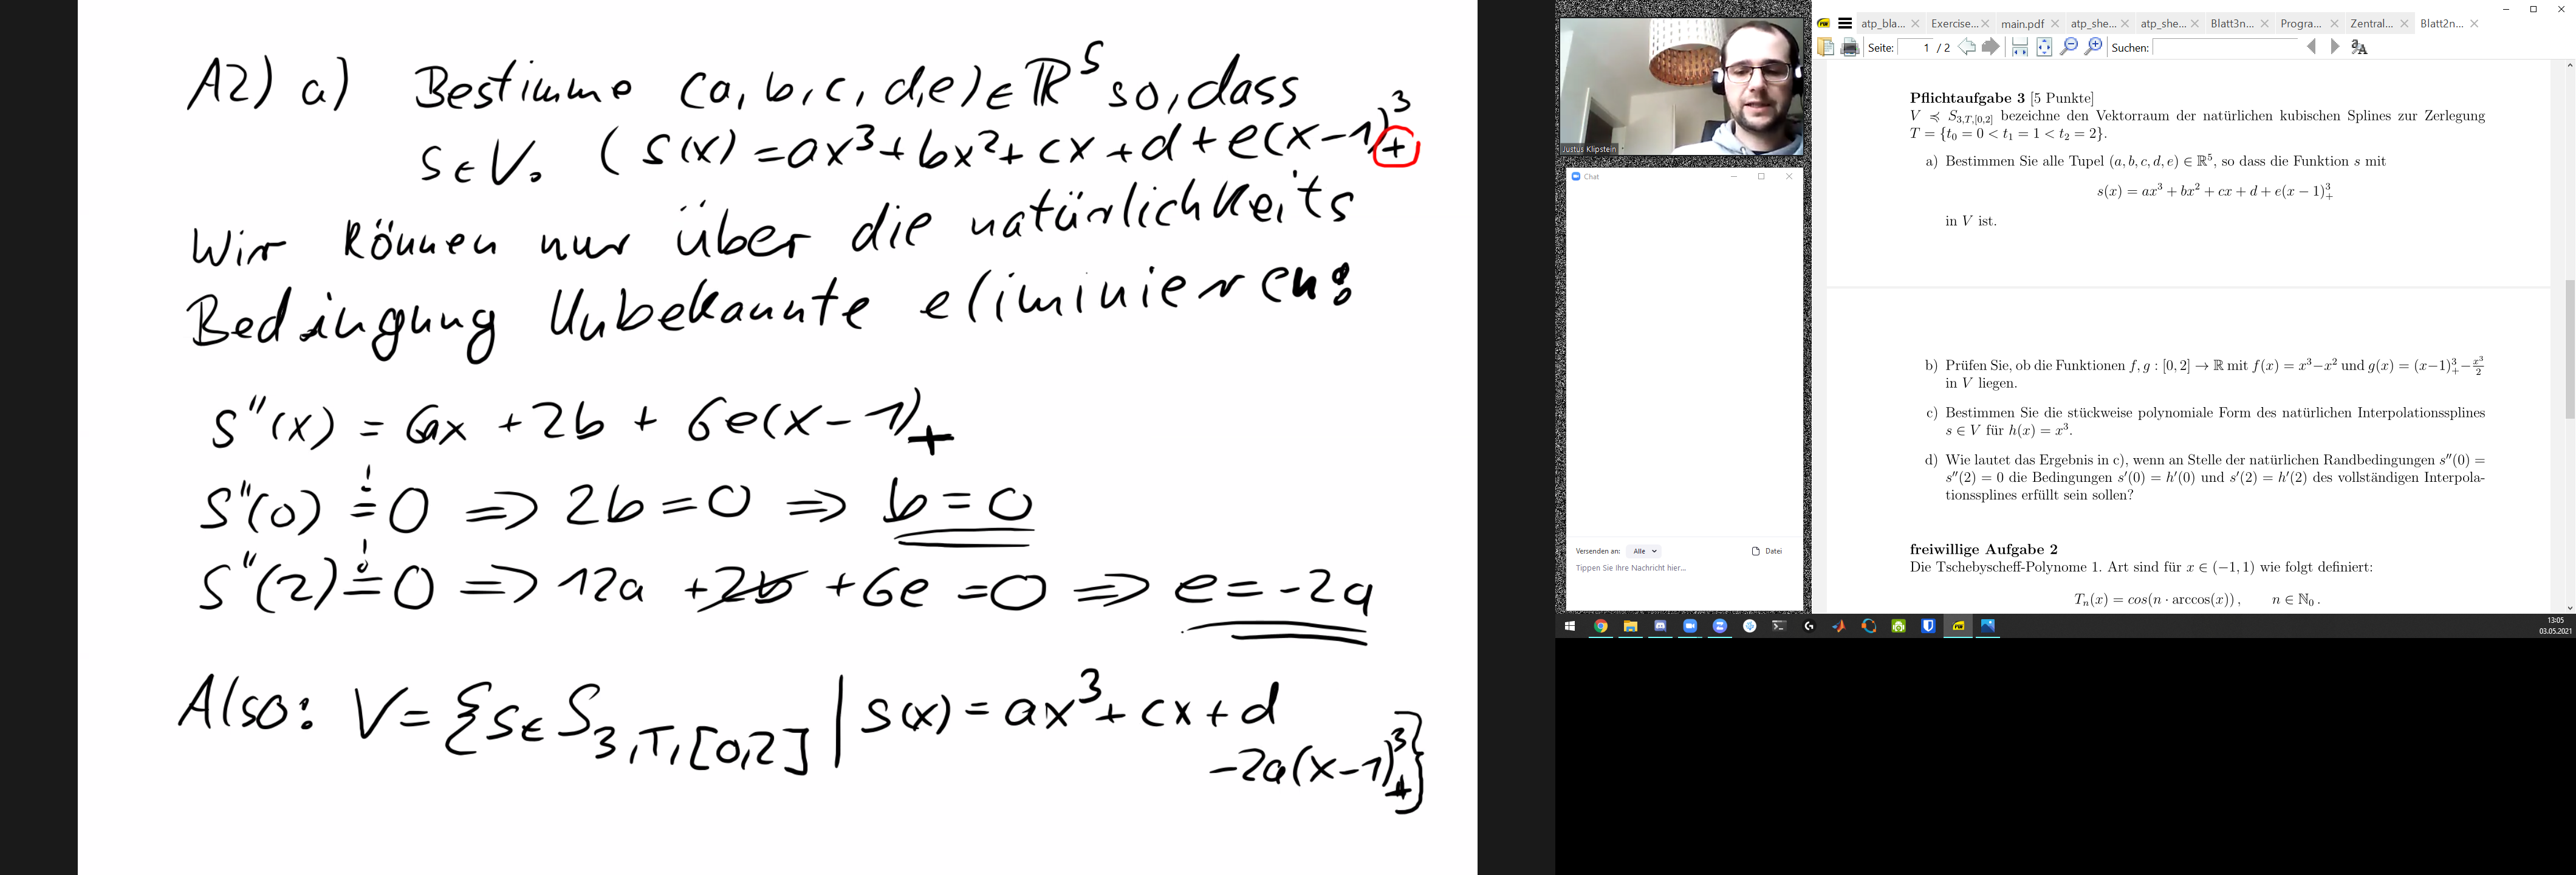 A2) a) Bestimme (a, b, c, d, e) ∈ ℝ⁵ so, dass
s ∈ V. ( s(x) = ax³ + bx² + cx + d + e(x-1)³₊
Wir können nur über die natürlichkeits
Bedingung Unbekannte eliminieren:
s''(x) = 6ax + 2b + 6e(x-1)₊
s''(0) != 0 ⇒ 2b = 0 ⇒ b = 0
s''(2) != 0 ⇒ 12a + 2b + 6e = 0 ⇒ e = -2a
Also: V = {s ∈ S₃,T,[0,2] | s(x) = ax³ + cx + d
-2a(x-1)³₊}
Justus Klipstein
Chat
Versenden an: Alle Datei
Tippen Sie Ihre Nachricht hier...
atp_bla... Exercise... main.pdf atp_she... atp_she... Blatt3n... Progra... Zentral... Blatt2n...
Seite: 1 / 2 Suchen:
Pflichtaufgabe 3 [5 Punkte]
V ≼ S₃,T,[0,2] bezeichne den Vektorraum der natürlichen kubischen Splines zur Zerlegung
T = {t₀ = 0 < t₁ = 1 < t₂ = 2}.
a) Bestimmen Sie alle Tupel (a, b, c, d, e) ∈ ℝ⁵, so dass die Funktion s mit
s(x) = ax³ + bx² + cx + d + e(x − 1)³₊
in V ist.
b) Prüfen Sie, ob die Funktionen f, g : [0, 2] → ℝ mit f(x) = x³−x² und g(x) = (x−1)³₊−x³/2
in V liegen.
c) Bestimmen Sie die stückweise polynomiale Form des natürlichen Interpolationssplines
s ∈ V für h(x) = x³.
d) Wie lautet das Ergebnis in c), wenn an Stelle der natürlichen Randbedingungen s''(0) =
s''(2) = 0 die Bedingungen s'(0) = h'(0) und s'(2) = h'(2) des vollständigen Interpola-
tionssplines erfüllt sein sollen?
freiwillige Aufgabe 2
Die Tschebyscheff-Polynome 1. Art sind für x ∈ (−1, 1) wie folgt definiert:
Tₙ(x) = cos(n · arccos(x)) , n ∈ ℕ₀ .
13:05
03.05.2021